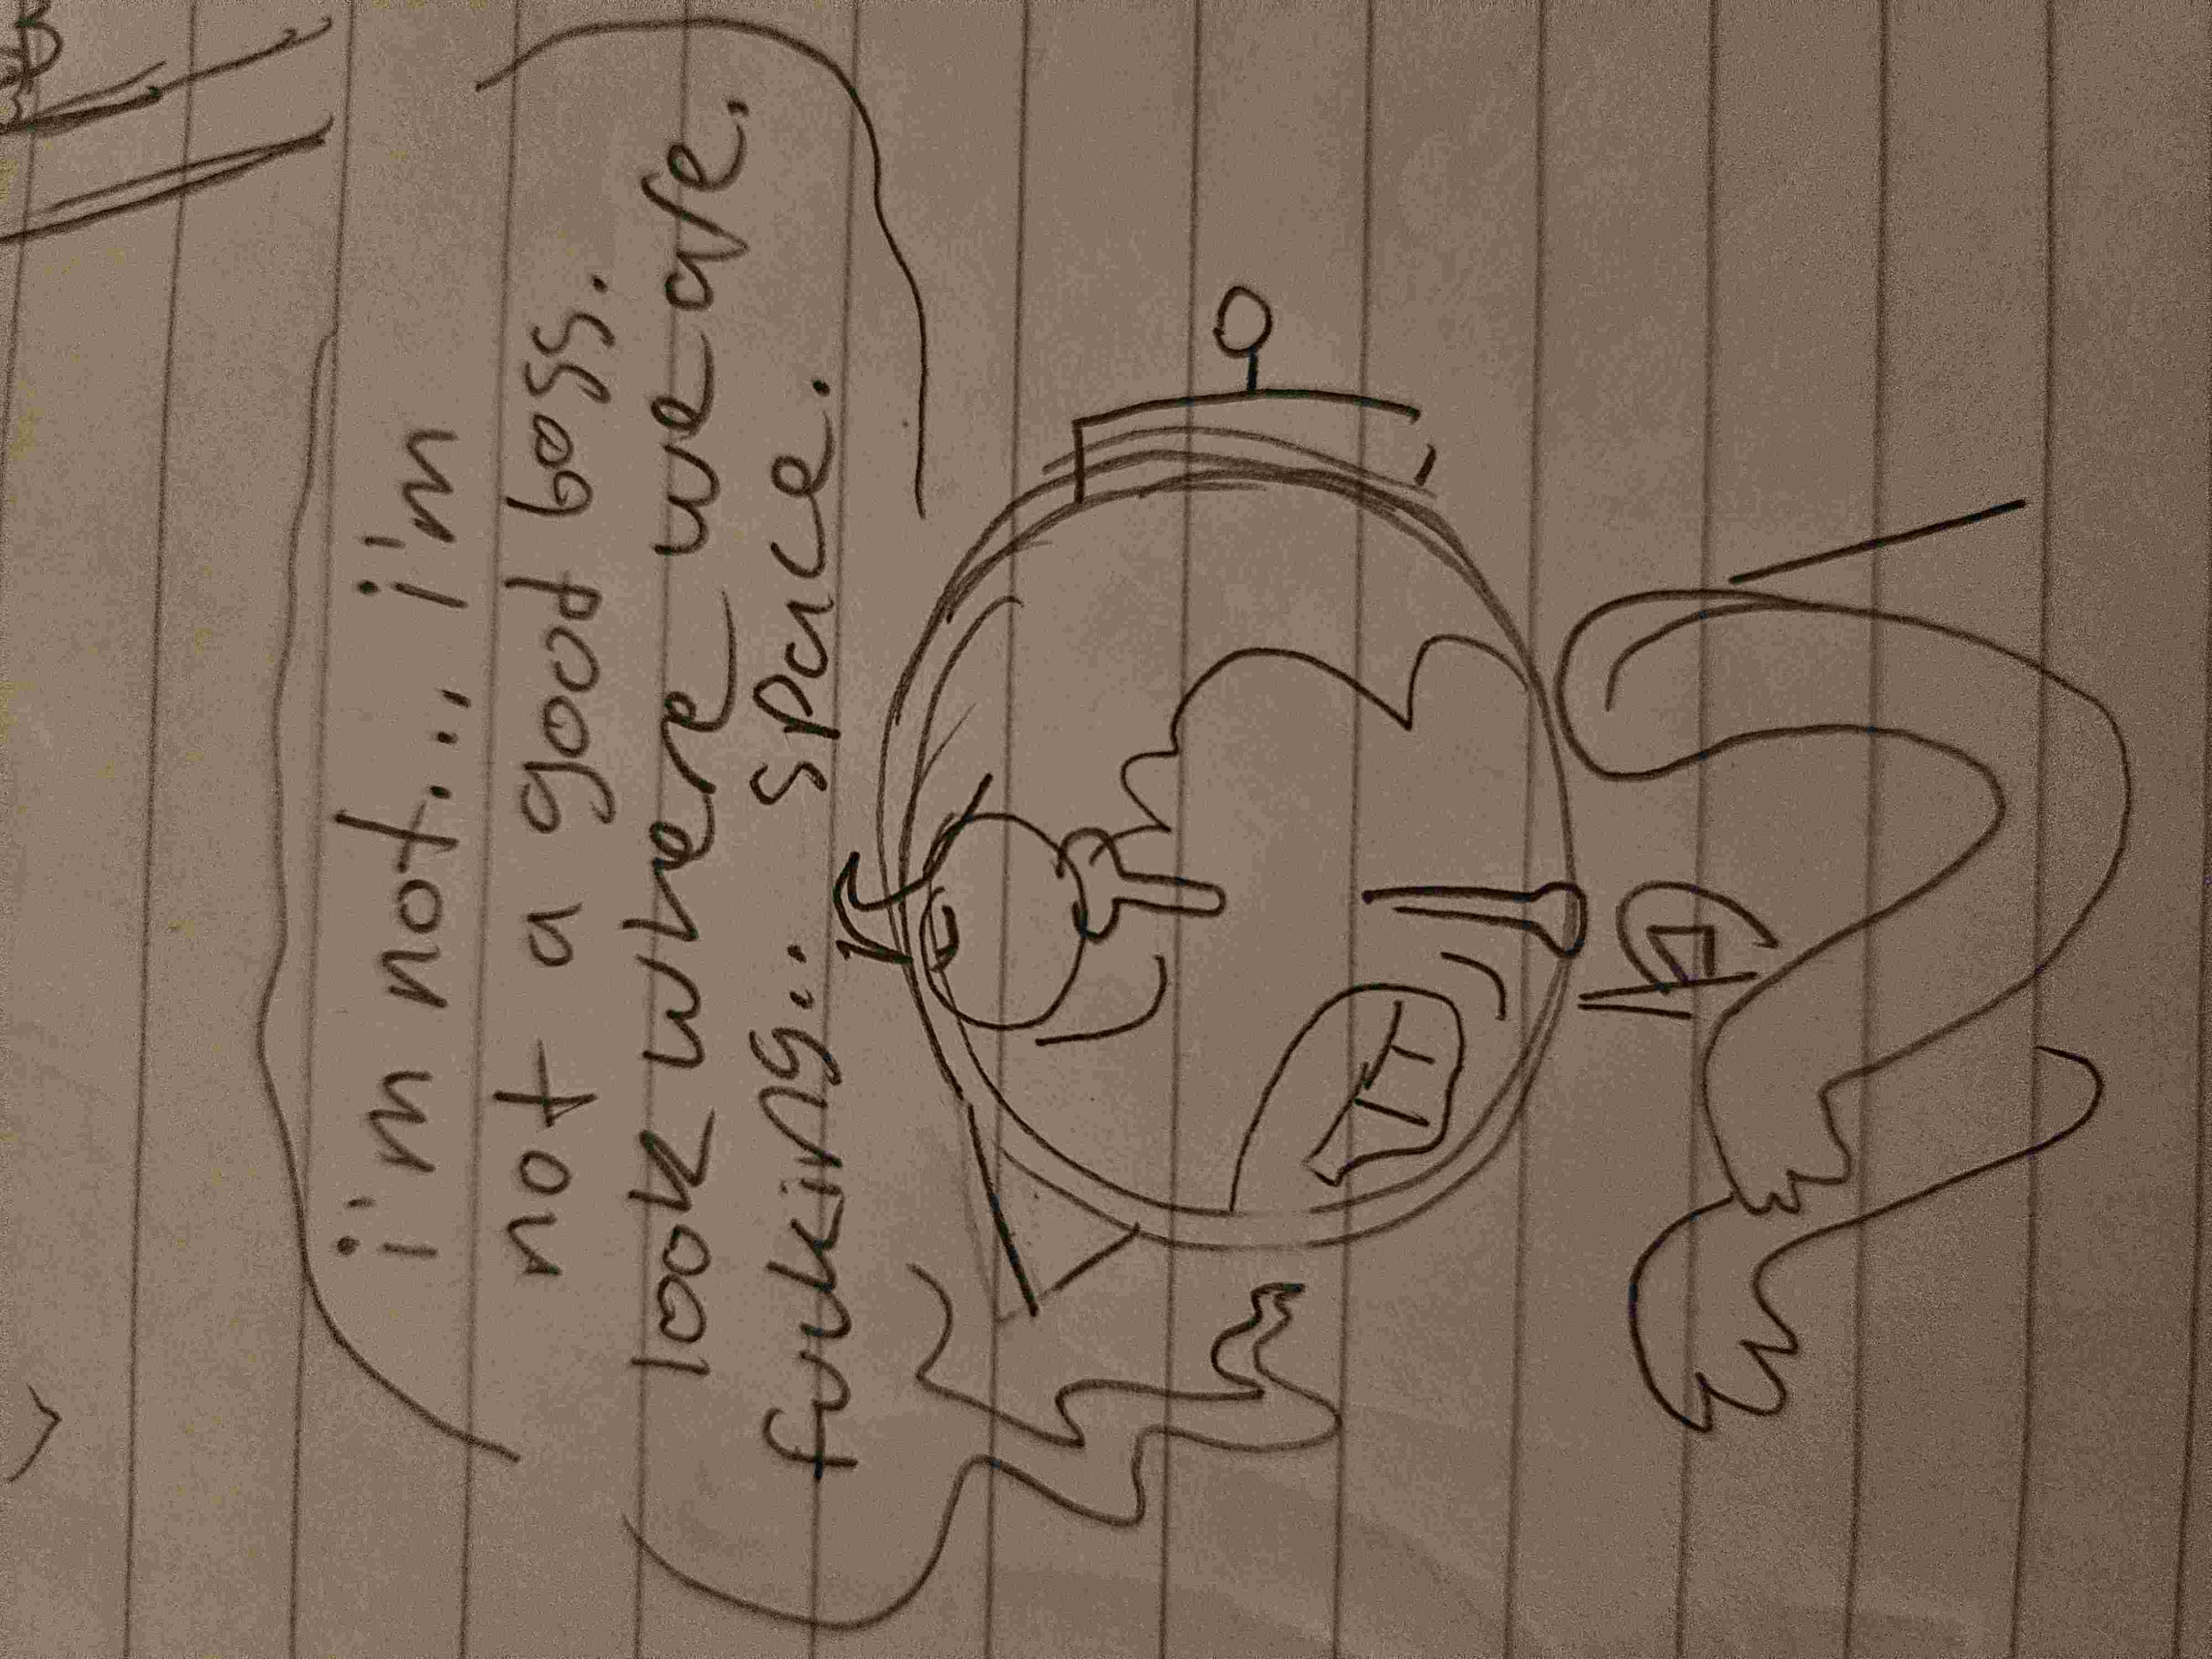 i'm not... i'm
not a good boss.
look where we are.
fucking.. space.